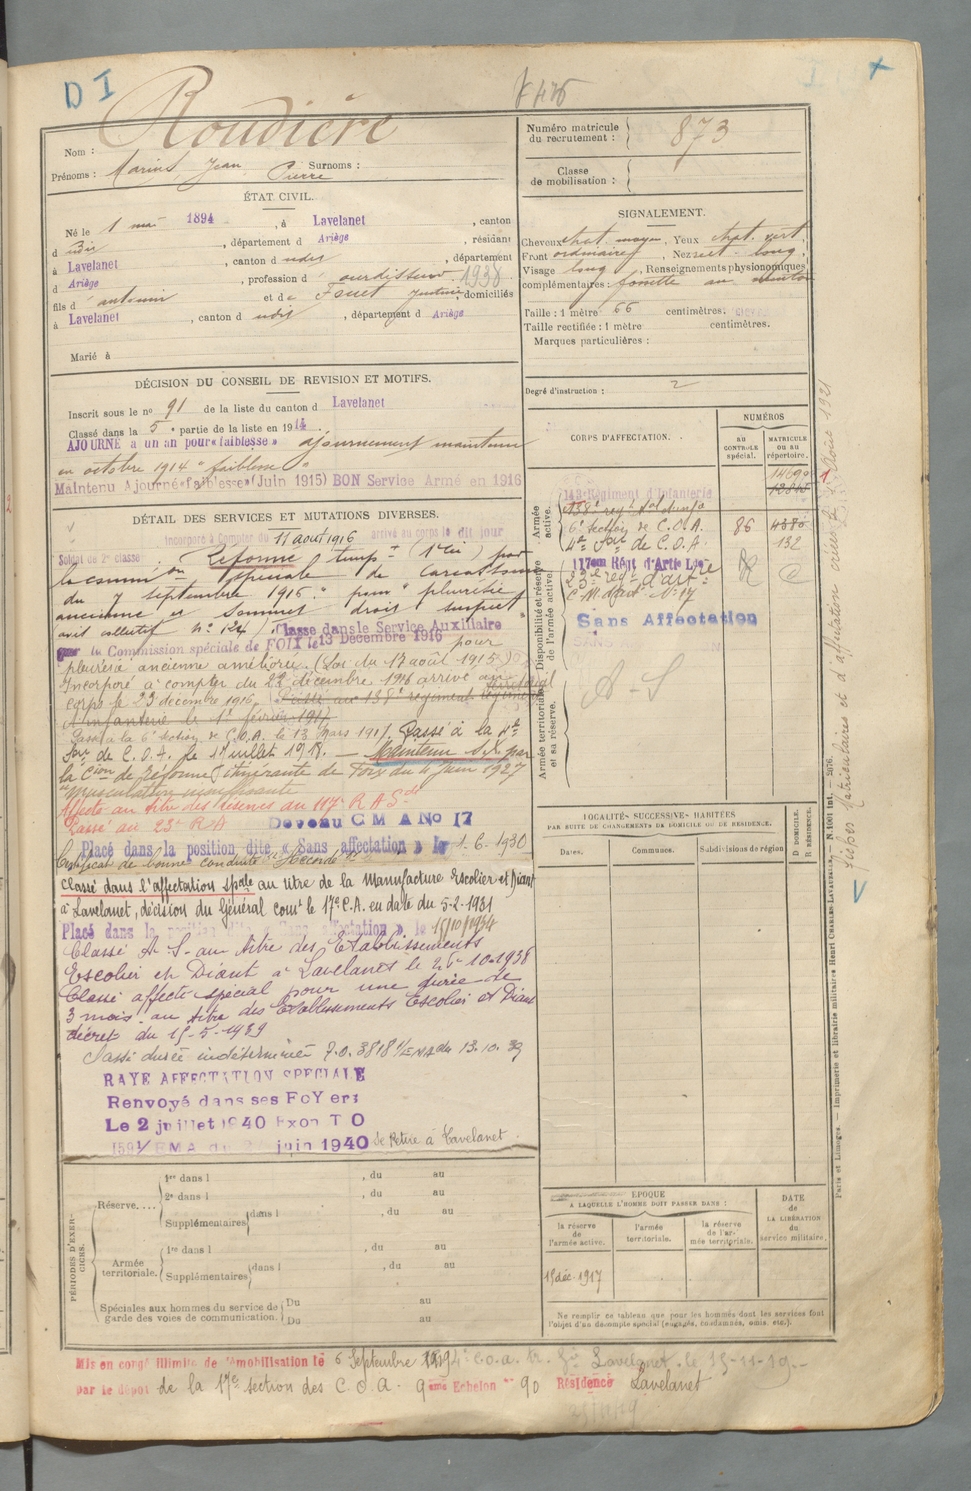 D I
Roudière
Nom :
Prénoms : Marius Jean Pierre Surnoms :
ÉTAT CIVIL.
Né le 1 mai 1894, à Lavelanet, canton
d udit, département d Ariège, résidant
à Lavelanet, canton d udit, département
d Ariège, profession d ourdisseur 1938
fils d antonin et de Fouet Justine, domiciliés
à Lavelanet, canton d udit, département d Ariège
Marié à
DÉCISION DU CONSEIL DE REVISION ET MOTIFS.
Inscrit sous le no 91 de la liste du canton d Lavelanet
Classé dans la 5e partie de la liste en 1914.
AJOURNÉ à un an pour « faiblesse » ajournement maintenu
en octobre 1914 "faiblesse"
Maintenu Ajourné «faiblesse» (Juin 1915) BON Service Armé en 1916
DÉTAIL DES SERVICES ET MUTATIONS DIVERSES.
Incorporé à Compter du 11 août 1916 arrivé au corps le dit jour
Soldat de 2e classe Réformé temp. (1e ) par
la commion spéciale de Carcassonne
du 7 septembre 1916. pour "pleurésie
ancienne et sommet droit suspect"
avis collectif no 124) Classé dans le Service Auxiliaire
par la Commission spéciale de FOIX le 13 Décembre 1916 pour
pleurésie ancienne améliorée. (Loi du 17 août 1915)
Incorporé à compter du 22 décembre 1916 arrivé au
corps le 23 décembre 1916. Passé au 138e régiment territorial
d'infanterie le 1er février 1917
Passé à la 6e section de C.O.A. le 13 mars 1917. Passé à la 4e
Son de C.O.A. le 1 Juillet 1918. — Maintenu S.X. par
la Cion de Réforme itinérante de Foix du 4 Juin 1927
"musculation insuffisante"
Affecté au titre des réserves au 117e R A Sde
Passé au 23e R A Deveau C M A No 17
Placé dans la position dite « Sans affectation » le 1-6-1930
Certificat de bonne conduite "Accordé"
Classé dans l'affectation spale au titre de la Manufacture Escolier et Diant
à Lavelanet, décision du Général comt le 17e C.A. en date du 5-2-1931
Placé dans la position dite « Sans affectation » le 15/10/1934
Classé A.S. au titre des Etablissements
Escolier et Diant à Lavelanet le 26-10-1938
Classé affecté spécial pour une durée de
3 mois au titre des Etablissements Escolier et Diant
décret du 15-5-1939
Passé durée indéterminée F.O. 3818 1/EMA du 13.10.39
RAYE AFFECTATION SPECIALE
Renvoyé dans ses FoYers
Le 2 juillet 1940
1/EMA du juin 1940 Se Retire à Lavelanet
PÉRIODES D'EXERCICES.
Réserve....
1re dans l , du au
2e dans l , du au
Supplémentaires dans l , du au
Armée territoriale.
1re dans l , du au
Supplémentaires dans l , du au
Spéciales aux hommes du service de garde des voies de communication.
Du au
Du au
Mis en congé illimité de démobilisation le 6 Septembre 1919
par le dépôt de la 17e section des C.O.A. 9ème Echelon no 90 Résidence Lavelanet
Lavelanet le 15-11-19
Numéro matricule du recrutement : 873
Classe de mobilisation :
SIGNALEMENT.
Cheveux chat. moyen, Yeux chat. vert,
Front ordinaire, Nez rect. long,
Visage long, Renseignements physionomiques
complémentaires : fossette au menton
Taille : 1 mètre 66 centimètres.
Taille rectifiée : 1 mètre centimètres.
Marques particulières :
Degré d'instruction : 2
CORPS D'AFFECTATION.
NUMÉROS
AU CONTRÔLE spécial.
MATRICULE OU AU répertoire.
Armée active.
143 Régiment d'Infanterie
138e regt d'infie
6e Section de C.O.A. 86 4380
4e Son de C.O.A. 132
Disponibilité et réserve de l'armée active.
117ème Régt d'Artie Lde
23e regt d'artie
C.M. d'art. No 17
Sans Affectation
Armée territoriale et sa réserve.
A-S
LOCALITÉS SUCCESSIVES HABITÉES
PAR SUITE DE CHANGEMENTS DE DOMICILE OU DE RÉSIDENCE.
Dates. Communes. Subdivisions de région D. DOMICILE. R. RÉSIDENCE.
ÉPOQUE
A LAQUELLE L'HOMME DOIT PASSER DANS :
la réserve de l'armée active. l'armée territoriale. la réserve de l'armée territoriale.
DATE de LA LIBÉRATION du service militaire.
15 déc. 1917
Ne remplir ce tableau que pour les hommes dont les services font l'objet d'un décompte spécial (engagés, condamnés, omis, etc.).
Paris et Limoges. — Imprimerie et librairie militaires Henri CHARLES-LAVAUZELLE. — N. 1001 int. — 2876.